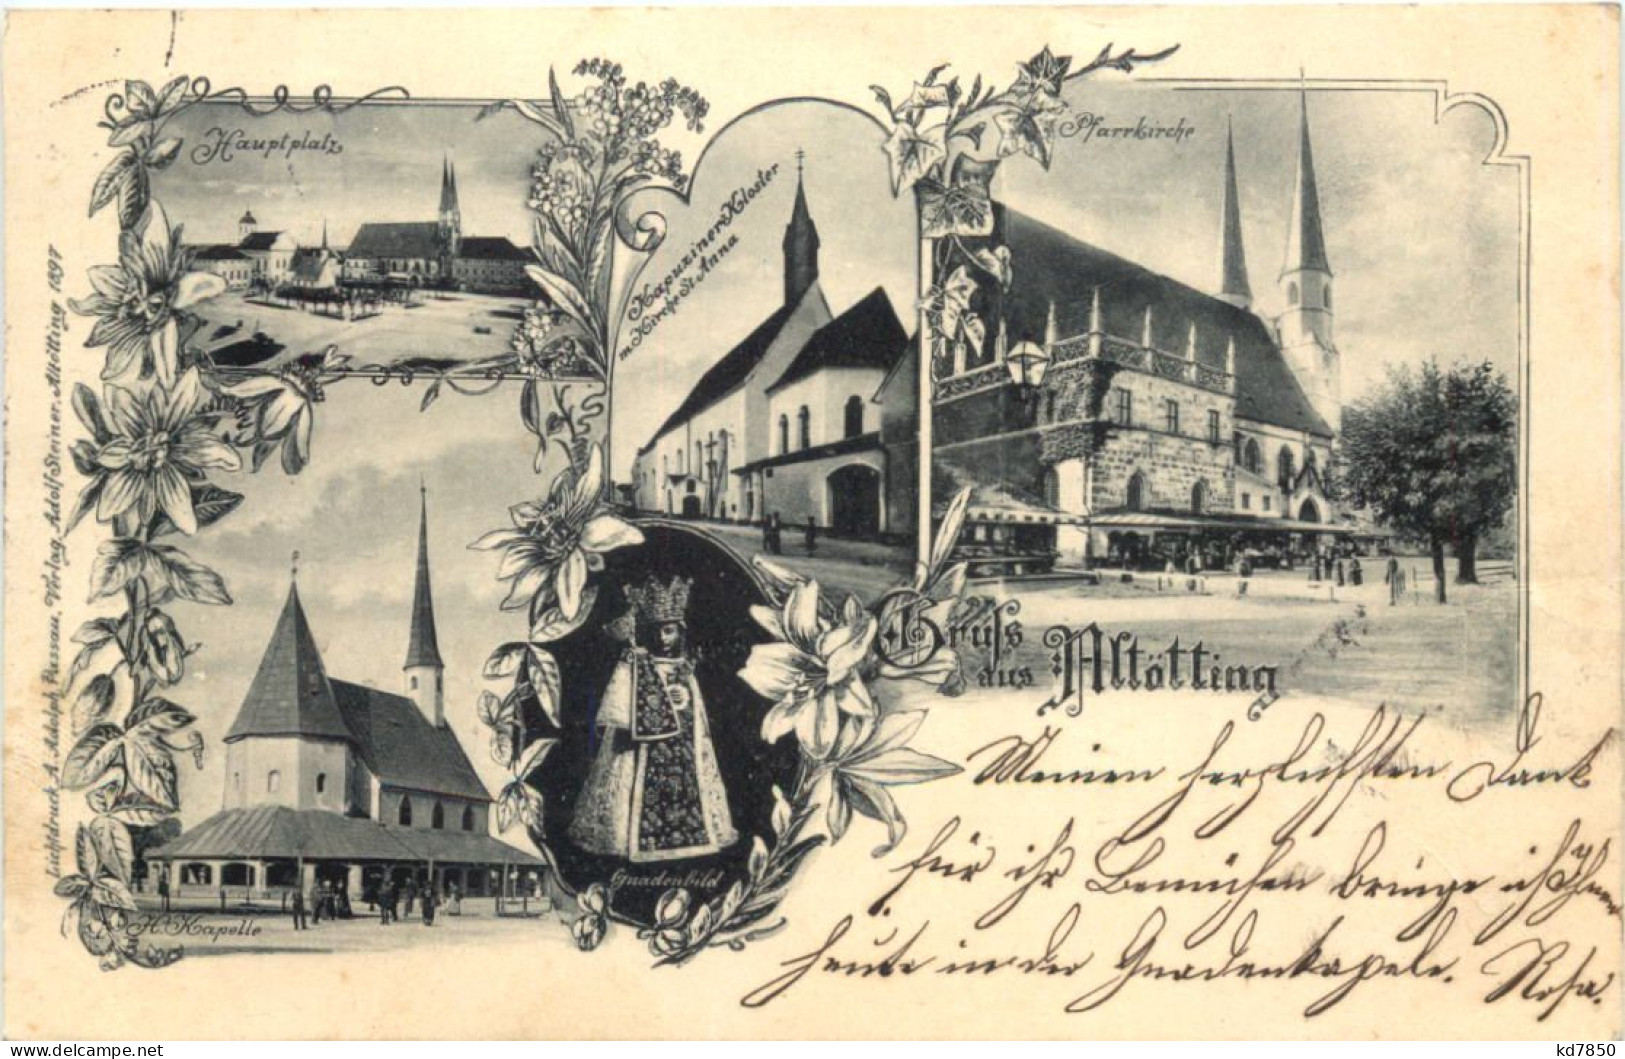 Hauptplatz
Kapuziner-Kloster
m. Kirche St. Anna
Pfarrkirche
Lichtdruck A. Adolph Passau, Verlag Adolf Steiner, Altötting 1897
Gruſs
aus Altötting
H. Kapelle
Gnadenbild
Meinen herzlichsten Dank
für ihr Bemühen bringe ich Ihnen
heute in der Gnadenkapele.
Rosa.
kd7850